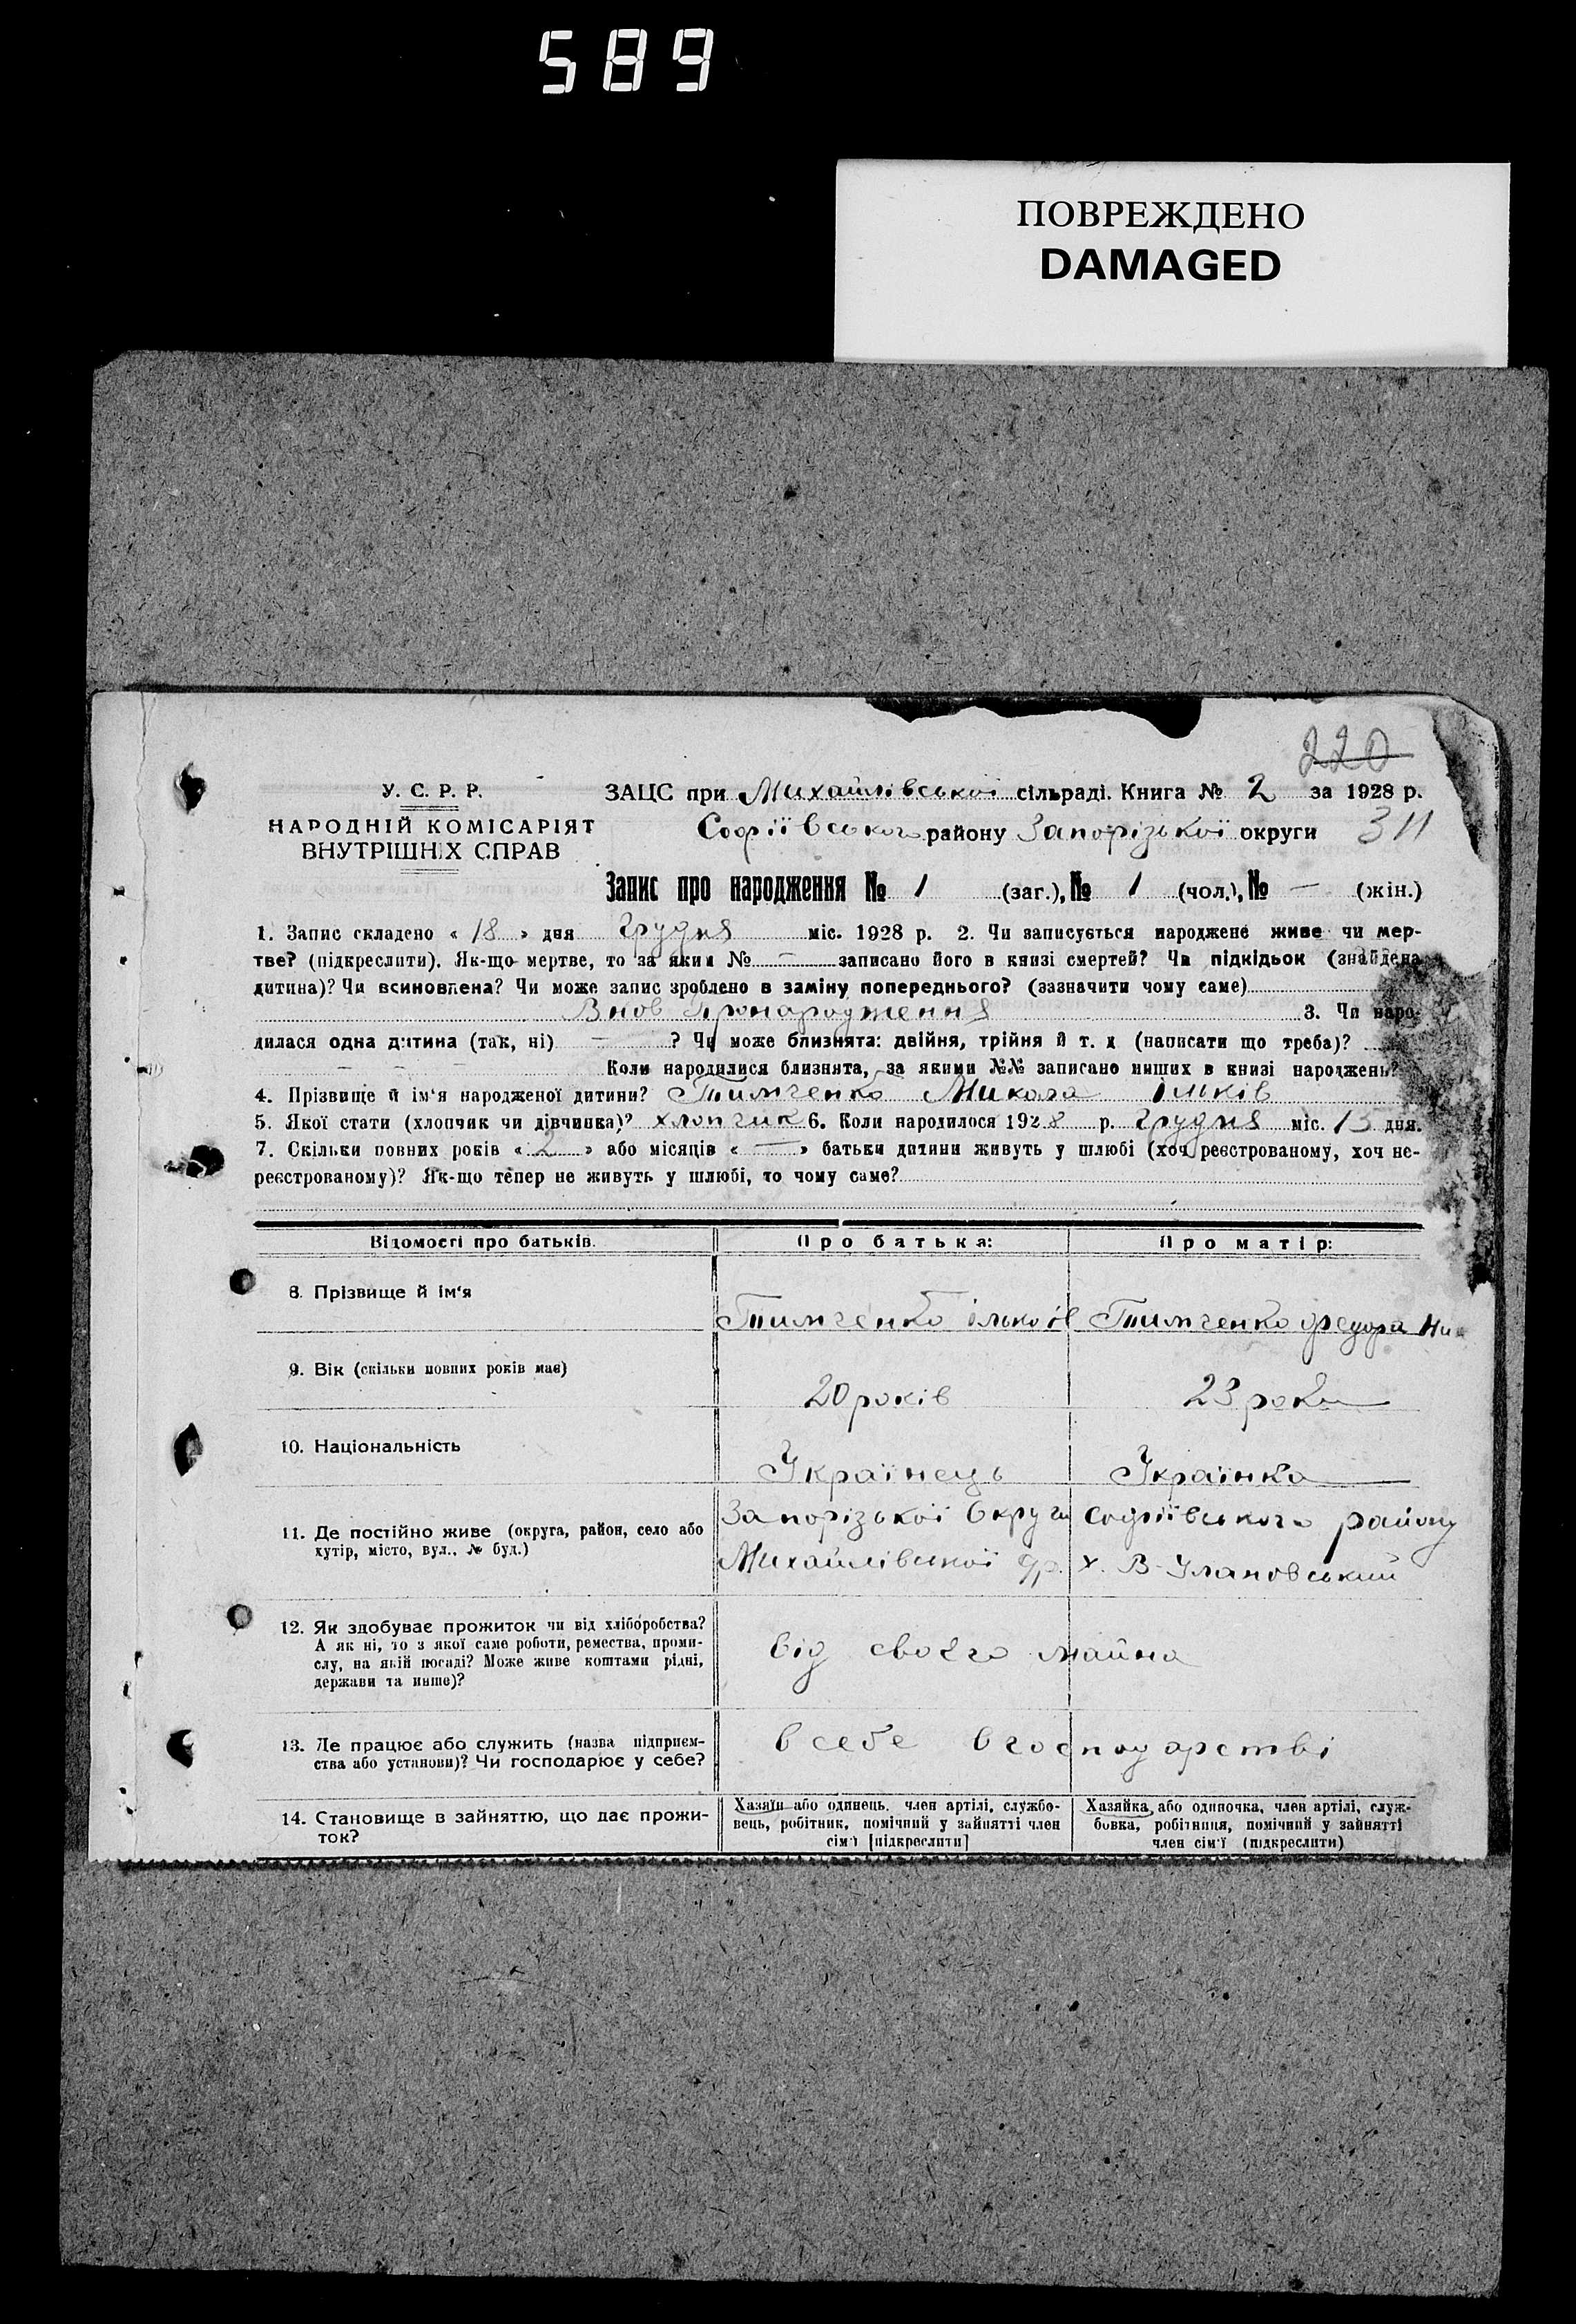 589
ПОВРЕЖДЕНО
DAMAGED
220
У. С. Р. Р.
НАРОДНІЙ КОМІСАРІЯТ
ВНУТРІШНІХ СПРАВ
ЗАЦС при Михайлівської сільраді. Книга № 2 за 1928 р.
Софіївського району Запорізької округи 311
Запис про народження № 1 (заг.), № 1 (чол.), № — (жін.)
1. Запис складено « 18 » дня грудня міс. 1928 р. 2. Чи записується народжене живе чи мер-
тве? (підкреслити). Як-що мертве, то за яким № — записано його в книзі смертей? Чи підкідьок (знайдена
дитина)? Чи всиновлена? Чи може запис зроблено в заміну попереднього? (зазначити чому саме)
Внов Пронародження 3. Чи наро-
дилася одна дитина (так, ні) — ? Чи може близнята: двійня, трійня й т. д (написати що треба)?
— — — — Коли народилися близнята, за якими №№ записано инших в книзі народжень?
4. Прізвище й ім'я народженої дитини? Тимченко Микола Ільків
5. Якої стати (хлопчик чи дівчинка)? хлопчик 6. Коли народилося 1928 р. грудня міс. 15 дня.
7. Скільки повних років « 2 » або місяців « — » батьки дитини живуть у шлюбі (хоч реєстрованому, хоч не-
реєстрованому)? Як-що тепер не живуть у шлюбі, то чому саме?
Відомості про батьків.
Про батька:
Про матір:
8. Прізвище й ім'я
Тимченко Ілько
Тимченко Федора
9. Вік (скільки повних років має)
20 років
23 роки
10. Національність
Українець
Українка
11. Де постійно живе (округа, район, село або
хутір, місто, вул., № буд.)
Запорізької Округи Софіївського району
Михайлівської х. В-Улановський
12. Як здобуває прожиток чи від хліборобства?
А як ні, то з якої саме роботи, ремества, проми-
слу, на якій посаді? Може живе коштами рідні,
держави та инше)?
від свого майна
13. Де працює або служить (назва підприєм-
ства або установи)? Чи господарює у себе?
в себе в господарстві
14. Становище в зайняттю, що дає прожи-
ток?
Хазяїн або одинець, член артілі, службо-
вець, робітник, помічний у зайнятті член
сім'ї [підкреслити]
Хазяйка, або одиночка, член артілі, служ-
бовка, робітниця, помічний у зайнятті
член сім'ї (підкреслити)